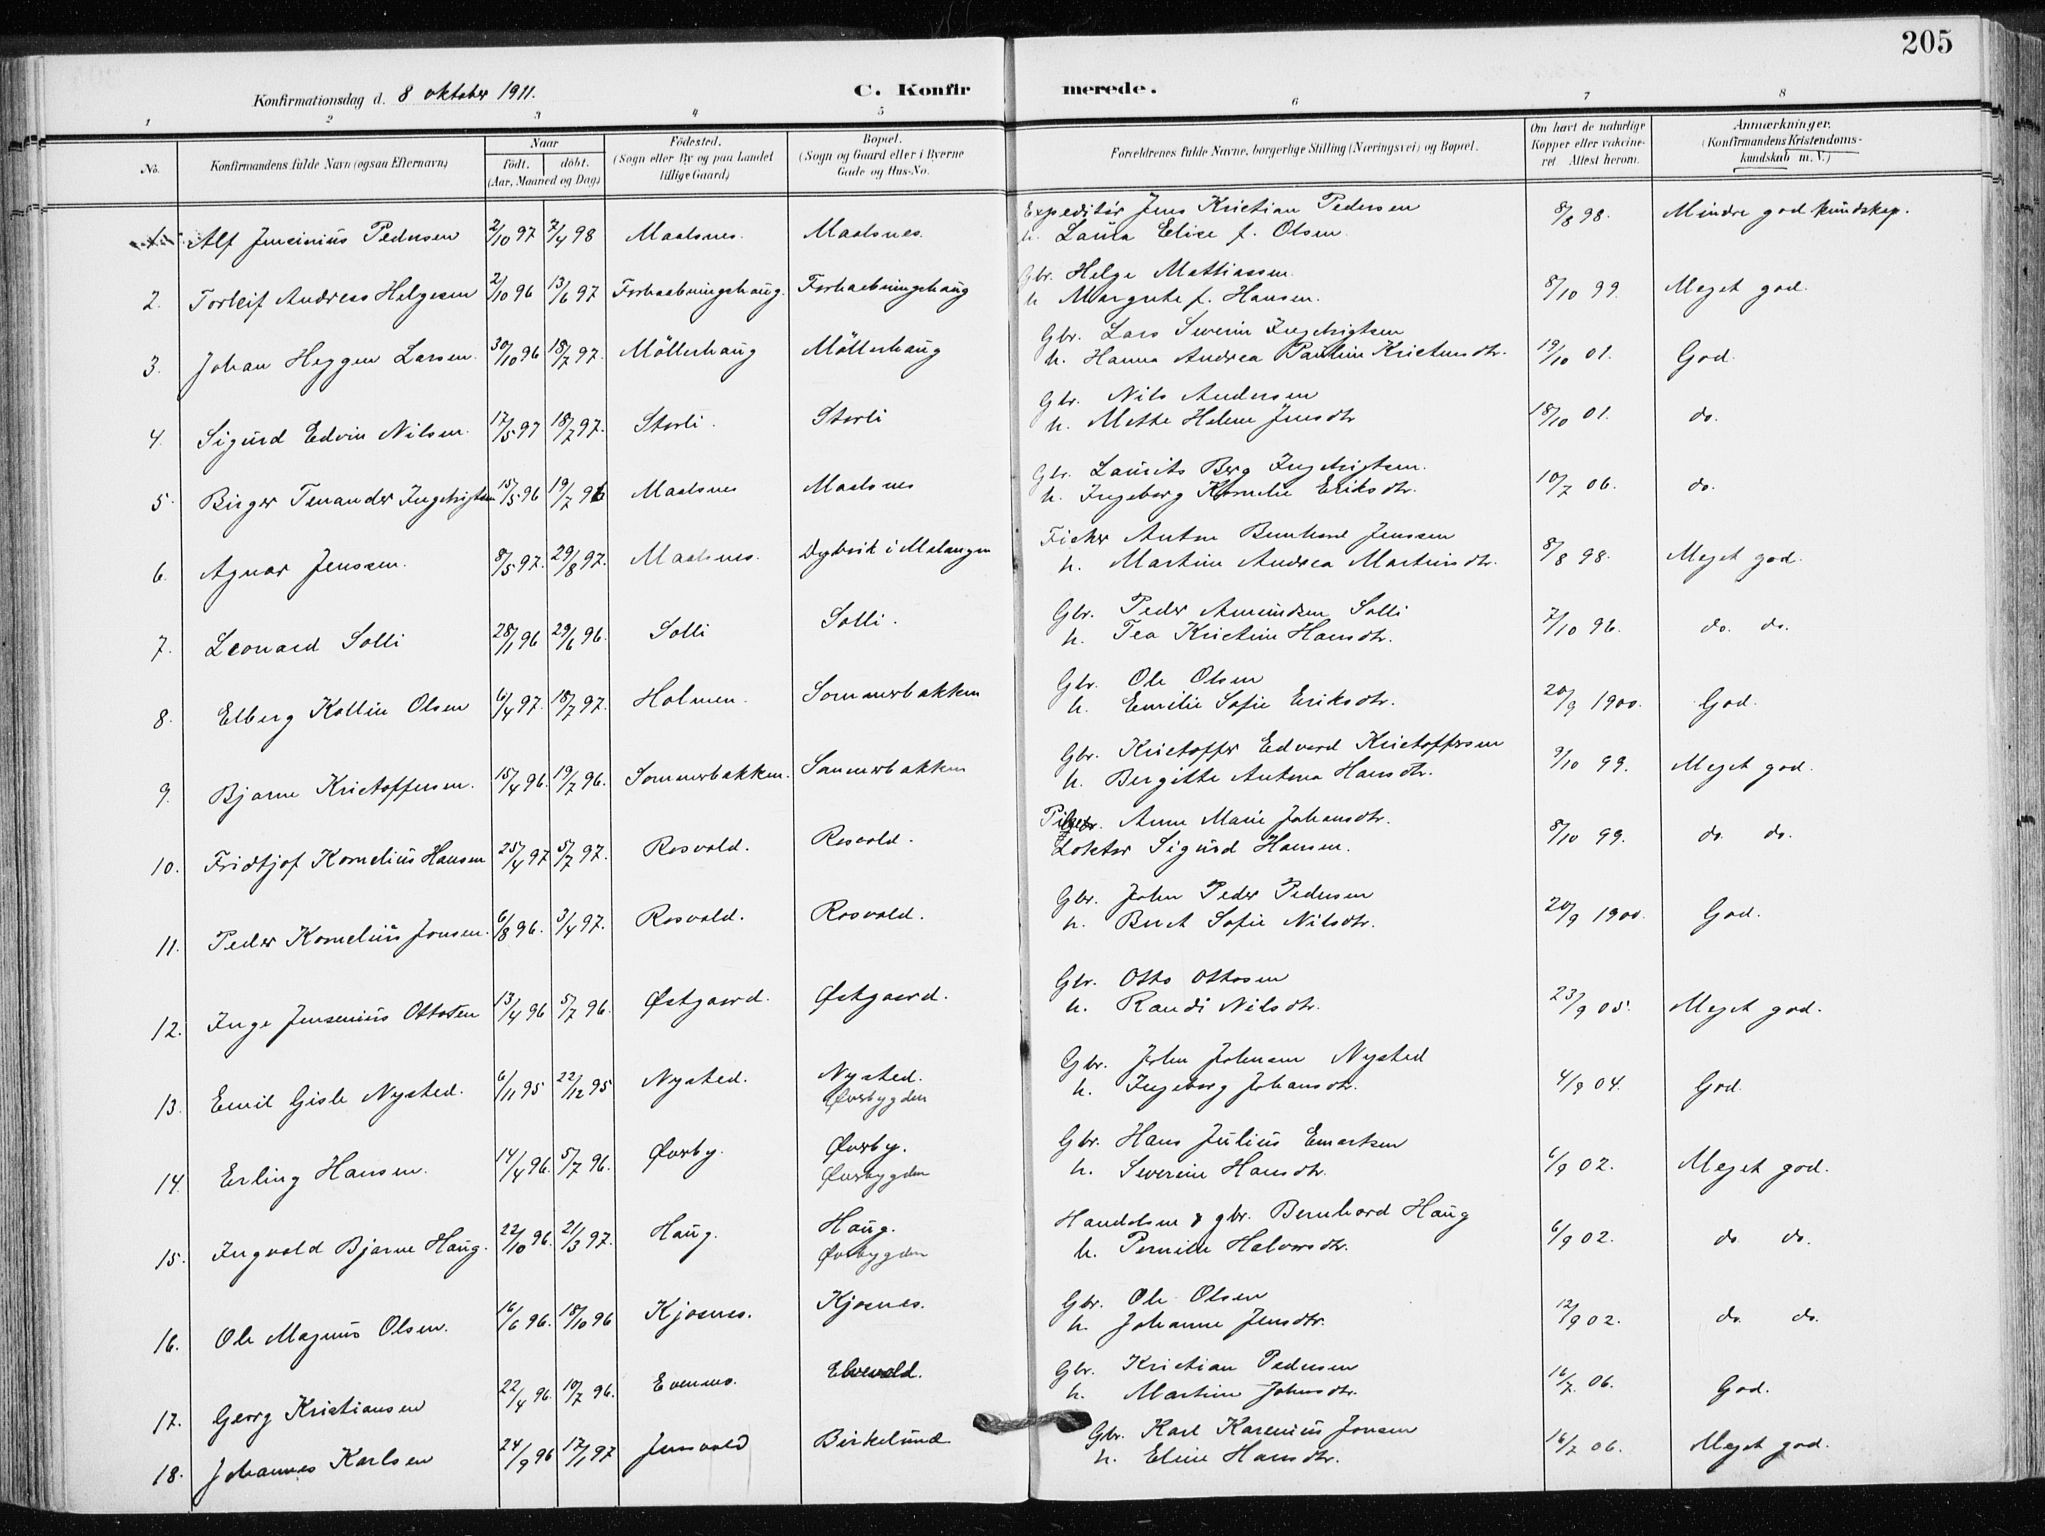 205
Konfirmationsdag d. 8 oktober 1911.
C. Konfirmerede.
1 2 3 4 5 6 7 8
No.
Konfirmandens fulde Navn (ogsaa Efternavn)
Naar
født. døbt.
(Aar, Maaned og Dag)
Fødested.
(Sogn eller By og paa Landet
tillige Gaard)
Bopæl.
(Sogn og Gaard eller i Byerne
Gade og Hus-No.
Forældrenes fulde Navne, borgerlige Stilling (Næringsvei) og Bopæl.
Om havt de naturlige
Kopper eller vakcine-
ret Attest herom.
Anmærkninger.
(Konfirmandens Kristendoms-
kundskab m. V.)
1. Alf Jensinius Pedersen 2/10 97 7/4 98 Maalsnes. Maalsnes. Expeditør Jens Kristian Pedersen 8/8 98. Mindre god kundskap.
h. Laura Elise f. Olsen.
2. Torleif Andreas Helgesen 2/10 96 13/6 97 Forhaabningshaug. Forhaabningshaug Gbr. Helge Mathiassen. 8/10 99. Meget god.
h. Margrete f. Hansen.
3. Johan Heggen Larsen. 30/10 96 18/7 97. Möllerhaug Möllerhaug Gbr. Lars Severin Ingebrigtsen 19/10 01. God.
h. Hanna Andrea Pauline Kristensdtr.
4. Sigurd Edvin Nilsen. 17/5 97 18/7 97. Storli. Storli Gbr. Nils Andersen 18/10 01. do.
h. Mette Helene Jensdtr
5. Birger Tenander Ingebrigtsen 15/5 96 19/7 96 Maalsnes Maalsnes Gbr. Laurits Berg Ingebrigtsen. 10/7 06. do.
h. Ingeborg Kornelie Eriksdtr.
6. Agnar Jenssen. 8/5 97. 29/8 97. Maalsnes. Dybvik i Malangen Fisker Anton Bernhard Jenssen 8/8 98. Meget god.
h. Martine Andrea Martinsdtr.
7. Leonard Solli 28/1 96 29/6 96. Solli Solli. Gbr. Peder Amundsen Solli 7/10 96. do. do.
h. Tea Kristine Hansdtr.
8. Elberg Kollin Olsen 6/4 97. 18/7 97. Holmen. Sommerbakken Gbr. Ole Olsen 20/9 1900. God.
h. Emilie Sofie Eriksdtr.
9. Bjarne Kristoffersen. 15/4 96. 19/7 96. Sommerbakken. Sommerbakken Gbr. Kristoffer Edvard Kristoffersen 9/10 99. Meget god.
h. Bergitte Antona Hansdtr.
10. Fridtjof Kornelius Hansen 25/4 97 5/7 97. Rosvold. Rosvold. Anne Marie Johansdtr. 8/10 99. do. do.
Sigurd Hansen.
11. Peder Kornelius Jonsen. 6/8 96. 3/4 97. Rosvold. Rosvold. Gbr. John Peder Pedersen 20/9 1900. God.
h. Berit Sofie Nilsdtr.
12. Inge Jensenius Ottosen 13/4 96 5/7 96. Østgaard. Østgaard. Gbr. Otto Ottosen 23/9 05. Meget god.
h. Randi Nilsdtr.
13. Emil Gisle Nysted. 6/11 95 22/12 95 Nysted. Nysted. Gbr. John Johnsen Nysted 4/9 04. God.
Øverbygden h. Ingeborg Johansdtr.
14. Erling Hansen. 14/4 96. 5/7 96. Øverby. Øverby. Gbr. Hans Julius Emertsen 6/9 02. Meget god.
Øverbygden h. Severine Hansdtr.
15. Ingvald Bjarne Haug. 22/10 96. 21/3 97. Haug. Haug. Handelsm & gbr. Bernhard Haug 6/9 02. do do.
Øverbygden h. Pernille Halvorsdtr.
16. Ole Magnus Olsen. 16/6 96. 18/10 96 Kjosnes. Kjosnes. Gbr. Ole Olsen 12/9 02. do. do.
h. Johanne Jensdtr.
17. Georg Kristiansen 22/4 96. 10/7 96. Evenmo. Elvevold. Gbr. Kristian Pedersen 16/7 06. God.
h. Martine Johnsdtr.
18. Johannes Karlsen 24/9 96 17/1 97 Jensvold Birkelund Gbr. Karl Karenius Jonsen 16/7 06. Meget god.
h. Eline Hansdtr.